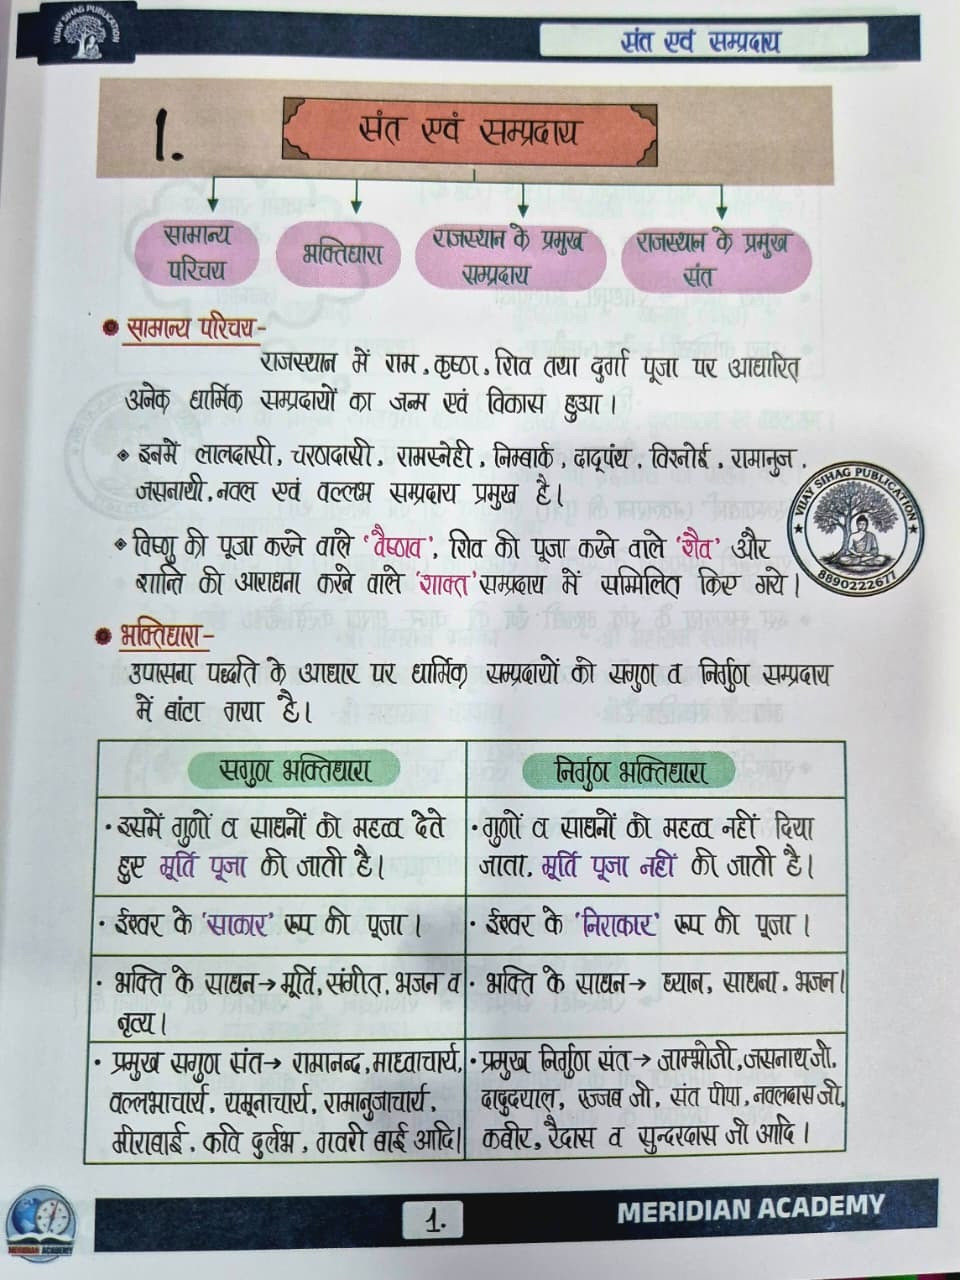 VIJAY SIHAG PUBLICATION
संत एवं सम्प्रदाय
1.
संत एवं सम्प्रदाय
सामान्य
परिचय
भक्तिधारा
राजस्थान के प्रमुख
सम्प्रदाय
राजस्थान के प्रमुख
संत
सामान्य परिचय-
राजस्थान में राम, कृष्ण, शिव तथा दुर्गा पूजा पर आधारित
अनेक धार्मिक सम्प्रदायों का जन्म एवं विकास हुआ।
इनमें लालदासी, चरणदासी, रामस्नेही, निम्बार्क, दादूपंथ, विश्नोई, रामानुज,
जसनाथी, नवल एवं वल्लभ सम्प्रदाय प्रमुख है।
विष्णु की पूजा करने वाले 'वैष्णव', शिव की पूजा करने वाले 'शैव' और
शान्ति की आराधना करने वाले 'शाक्त' सम्प्रदाय में सम्मिलित किए गये।
VIJAY SIHAG PUBLICATION
8890222677
भक्तिधारा-
उपासना पद्धति के आधार पर धार्मिक सम्प्रदायों को सगुण व निर्गुण सम्प्रदाय
में बांटा गया है।
सगुण भक्तिधारा
निर्गुण भक्तिधारा
• इसमें गुणों व साधनों को महत्व देते
हुए मूर्ति पूजा की जाती है।
• गुणों व साधनों को महत्व नहीं दिया
जाता, मूर्ति पूजा नहीं की जाती है।
• ईश्वर के 'साकार' रूप की पूजा
• ईश्वर के 'निराकार' रूप की पूजा।
• भक्ति के साधन→ मूर्ति, संगीत, भजन व
नृत्य।
• भक्ति के साधन→ ध्यान, साधना, भजन।
• प्रमुख सगुण संत→ रामानन्द, माध्वाचार्य,
वल्लभाचार्य, यमूनाचार्य, रामानुजाचार्य,
मीराबाई, कवि दुर्लभ, गवरी बाई आदि।
• प्रमुख निर्गुण संत→ जाम्भोजी, जसनाथ जी,
दादुदयाल, रज्जब जी, संत पीपा, नवलदास जी,
कबीर, रैदास व सुन्दरदास जी आदि।
MERIDIAN ACADEMY
1.
MERIDIAN ACADEMY